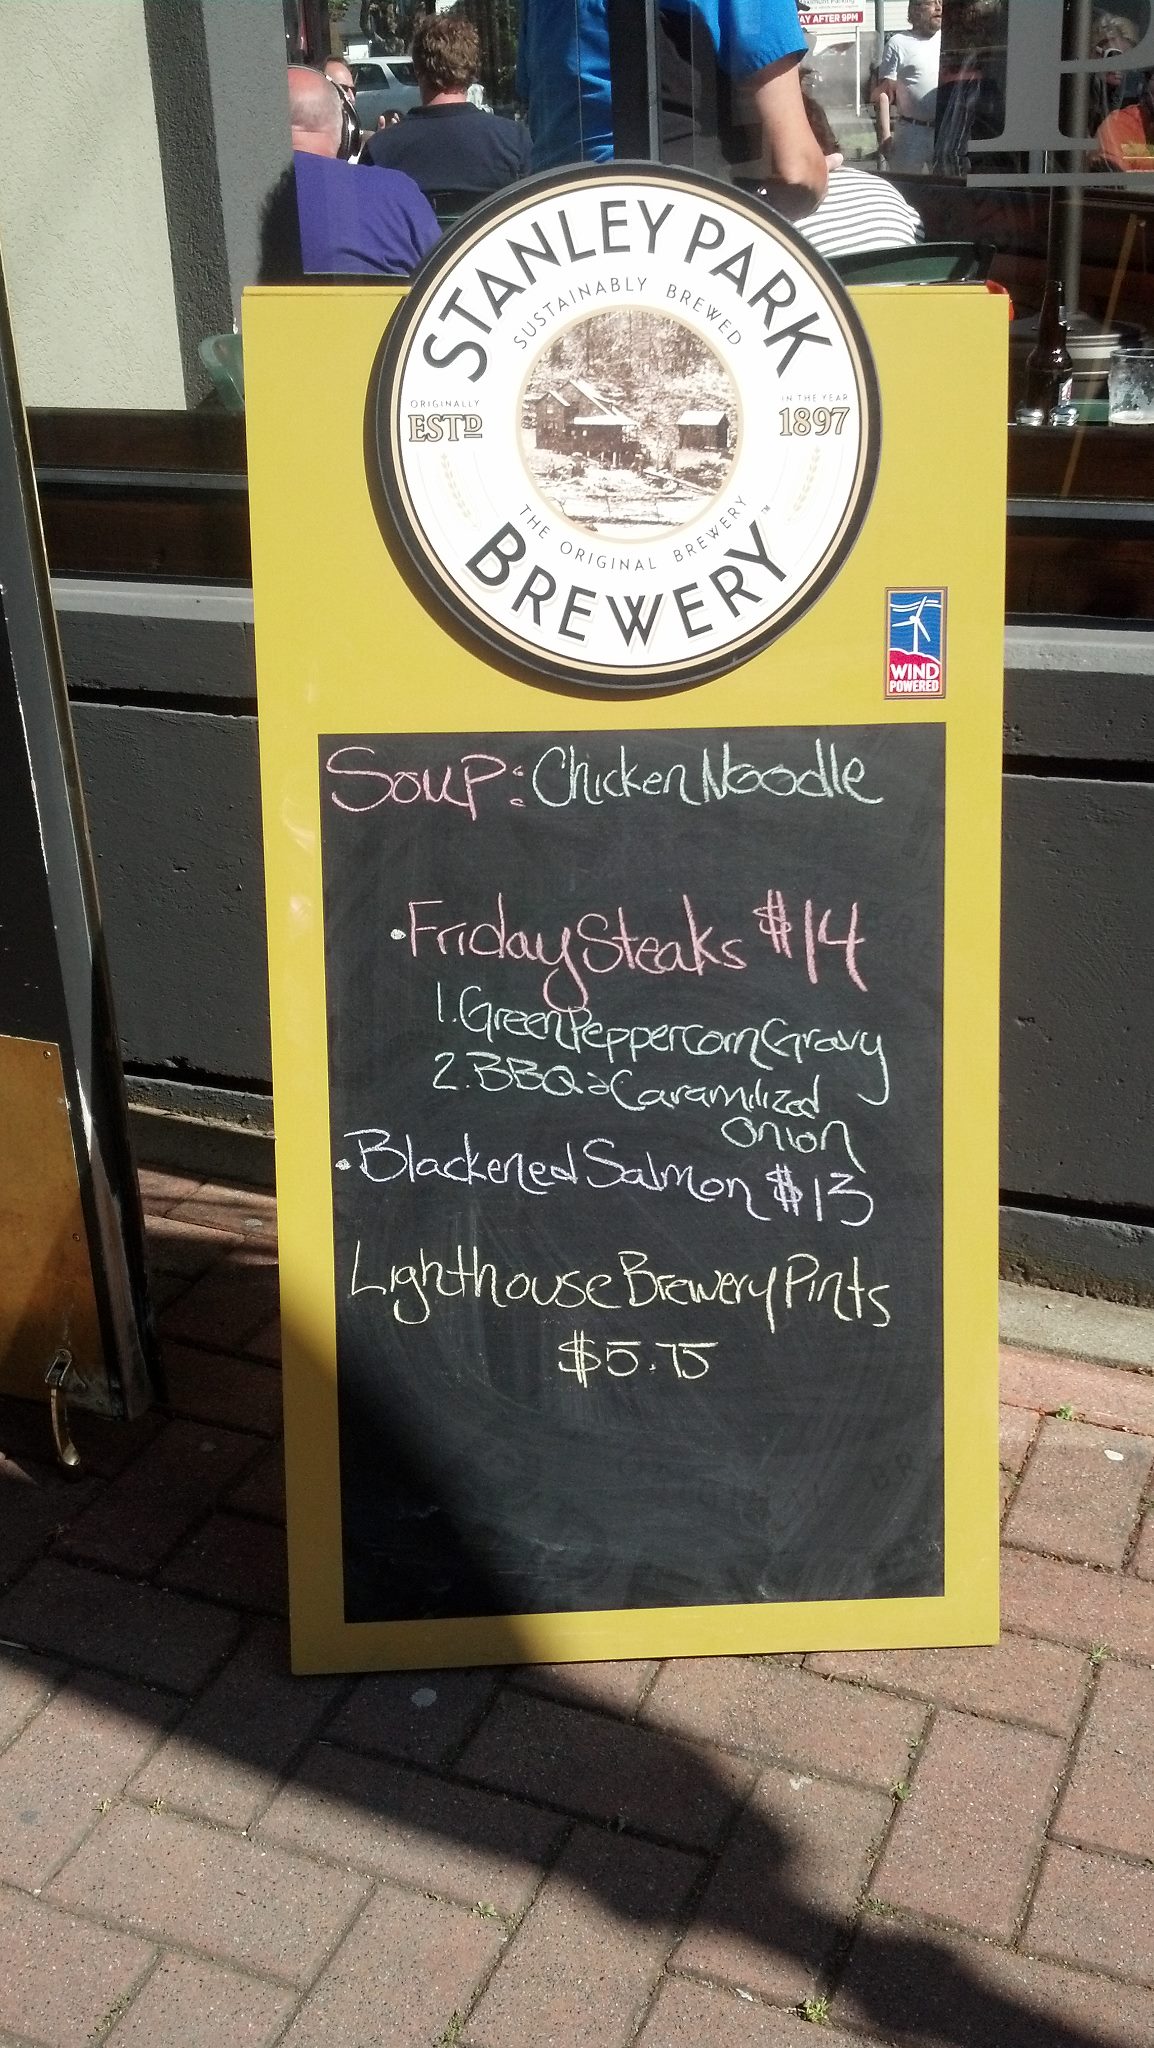 AY AFTER 9PM
STANLEY PARK
SUSTAINABLY BREWED
ORIGINALLY
ESTD
IN THE YEAR
1897
THE ORIGINAL BREWERY
BREWERY™
WIND
POWERED
Soup: Chicken Noodle
• Friday Steaks $14
1. Green Peppercorn Gravy
2. BBQ & Caramilized
onion
• Blackened Salmon $13
Lighthouse Brewery Pints
$5.75